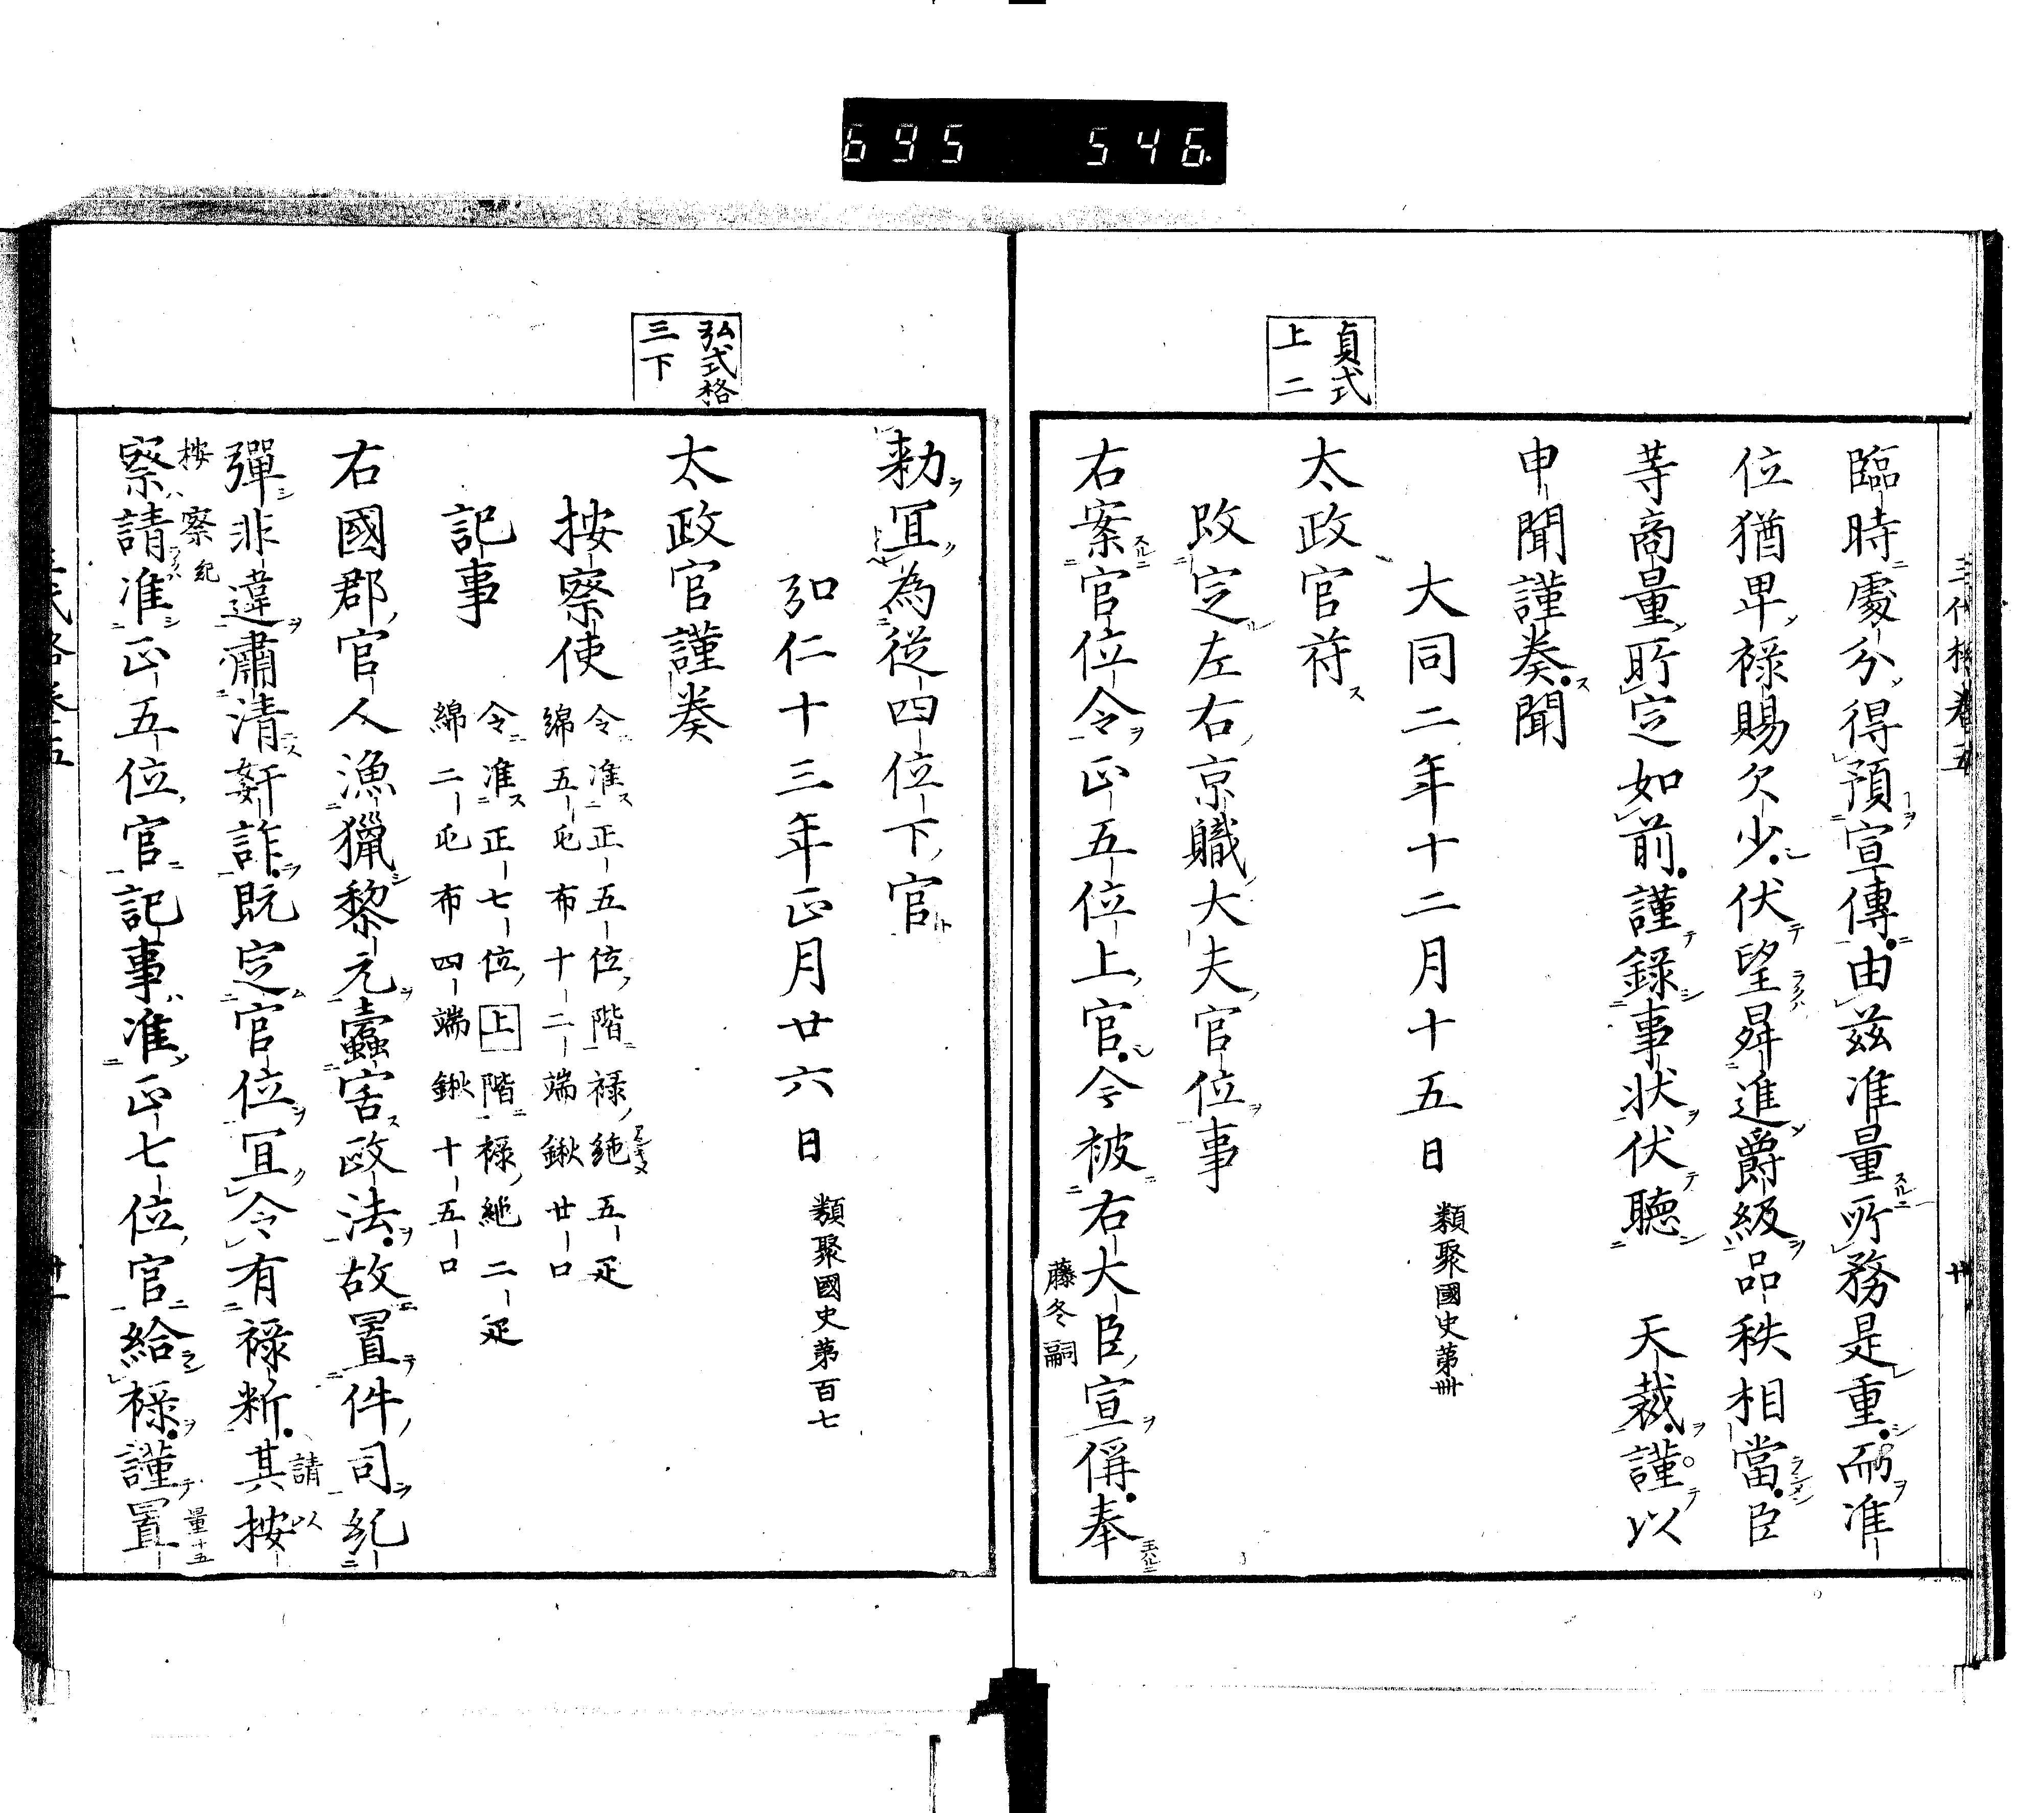 695 546.
貞式
上二
臨時處分得預宣傳由茲准量所務是重而准
位猶卑祿賜欠少伏望昇進爵級品秩相當臣
等商量所定如前謹錄事状伏聴　天裁謹以
申聞謹奏聞
大同二年十二月十五日　類聚國史第卌
太政官符
改定左右京職大夫官位事
右案官位令正五位上官今被右大臣宣偁奉
藤冬嗣
弘式格
三下
勅冝為從四位下官
弘仁十三年正月廿六日　類聚國史第百七
太政官謹奏
按察使　令准正五位階禄絁五疋
綿五屯布十二端鍬廿口
記事　令准正七位上階禄絁二疋
綿二屯布四端鍬十五口
右國郡官人漁獵黎元蠹害政法故置件司糺
彈非違肅清姧詐既定官位冝令有禄断其按
請以
察請准正五位官記事准正七位官給禄謹置
按察紀
量十五